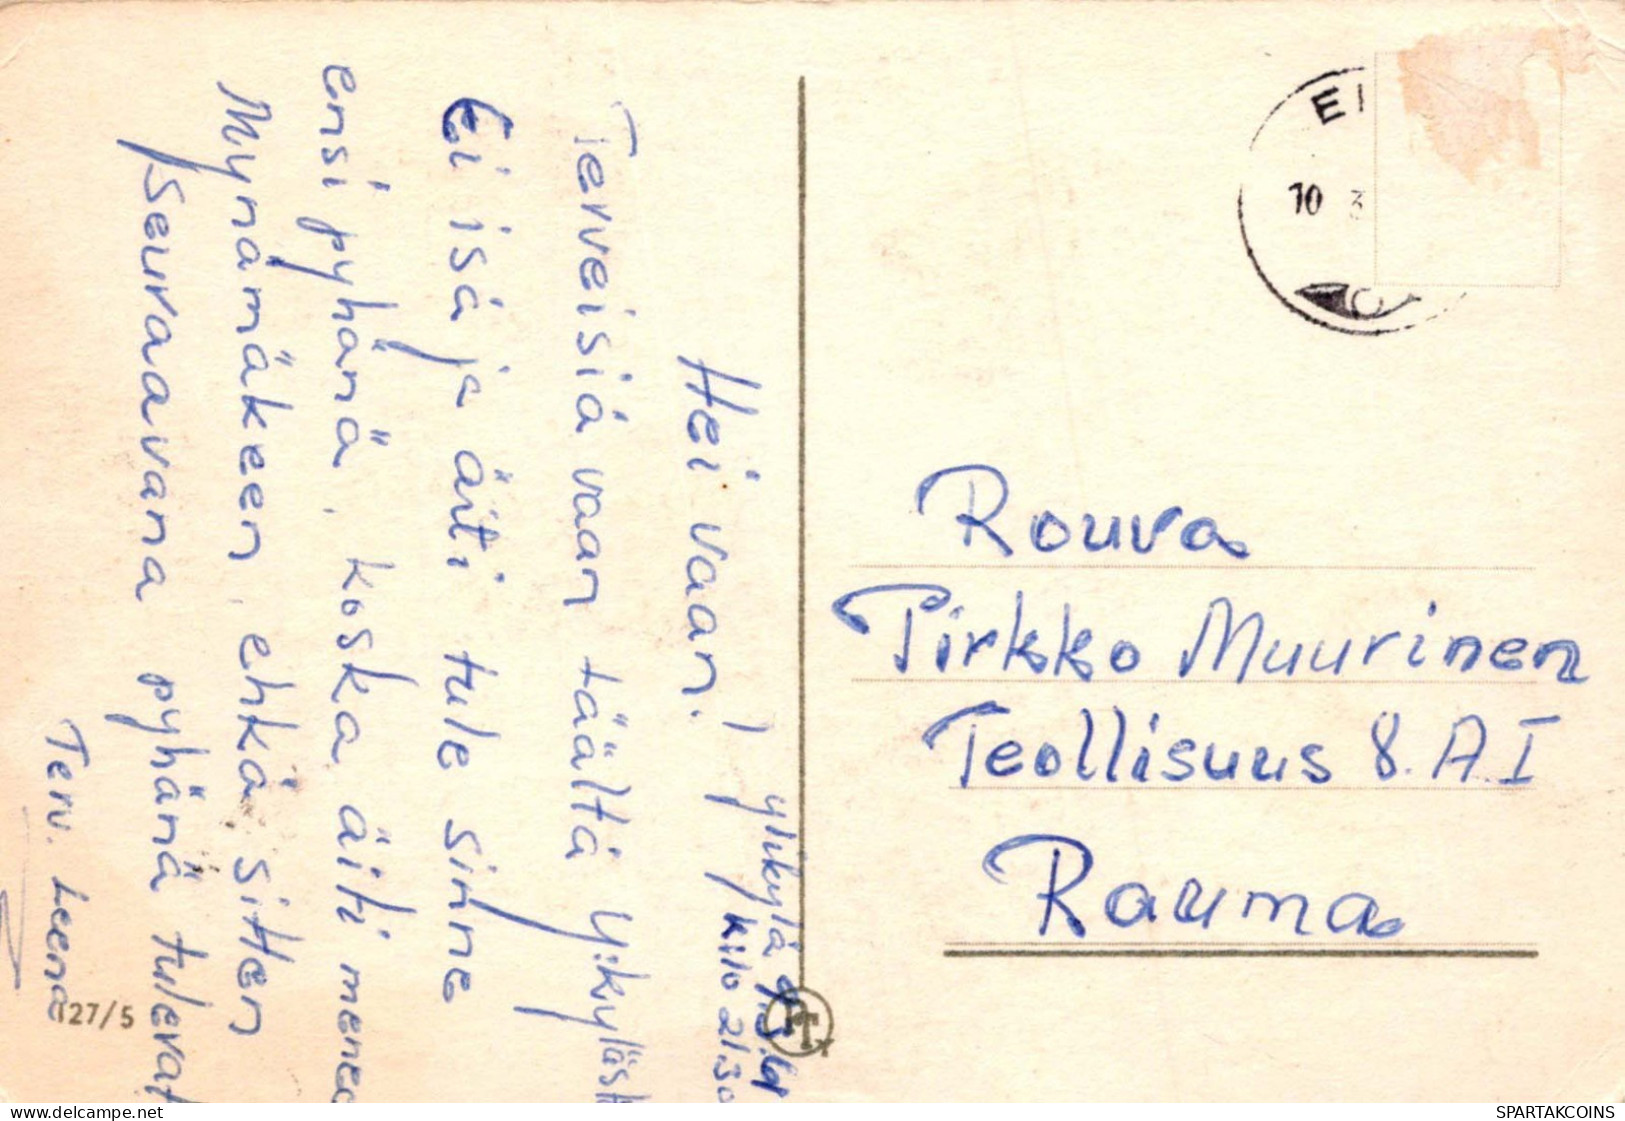 Ylikylä 9.3.61
klo 21.30
Hei vaan!
Terveisiä vaan täältä Ylikyläst
Ei isä ja äiti tule sinne
ensi pyhänä, koska äiti menee
Mynämäkeen, ehkä sitten
seuraavana pyhänä tulevat
Terv. Leena
127/5
EI
10 3
Rouva
Pirkko Muurinen
Teollisuus 8. A I
Rauma
www.delcampe.net
SPARTAKCOINS